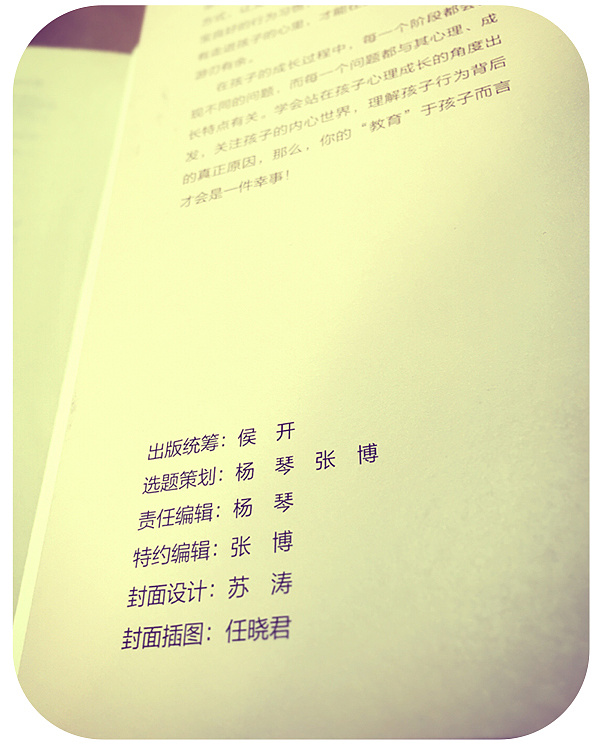 常良好的行为习惯
有走进孩子的心里，才能
游刃有余。
在孩子的成长过程中，每一个阶段都会
现不同的问题，而每一个问题都与其心理、成
长特点有关。学会站在孩子心理成长的角度出
发，关注孩子的内心世界，理解孩子行为背后
的真正原因，那么，你的“教育”于孩子而言
才会是一件幸事！
出版统筹：侯 开
选题策划：杨 琴 张 博
责任编辑：杨 琴
特约编辑：张 博
封面设计：苏 涛
封面插图：任晓君